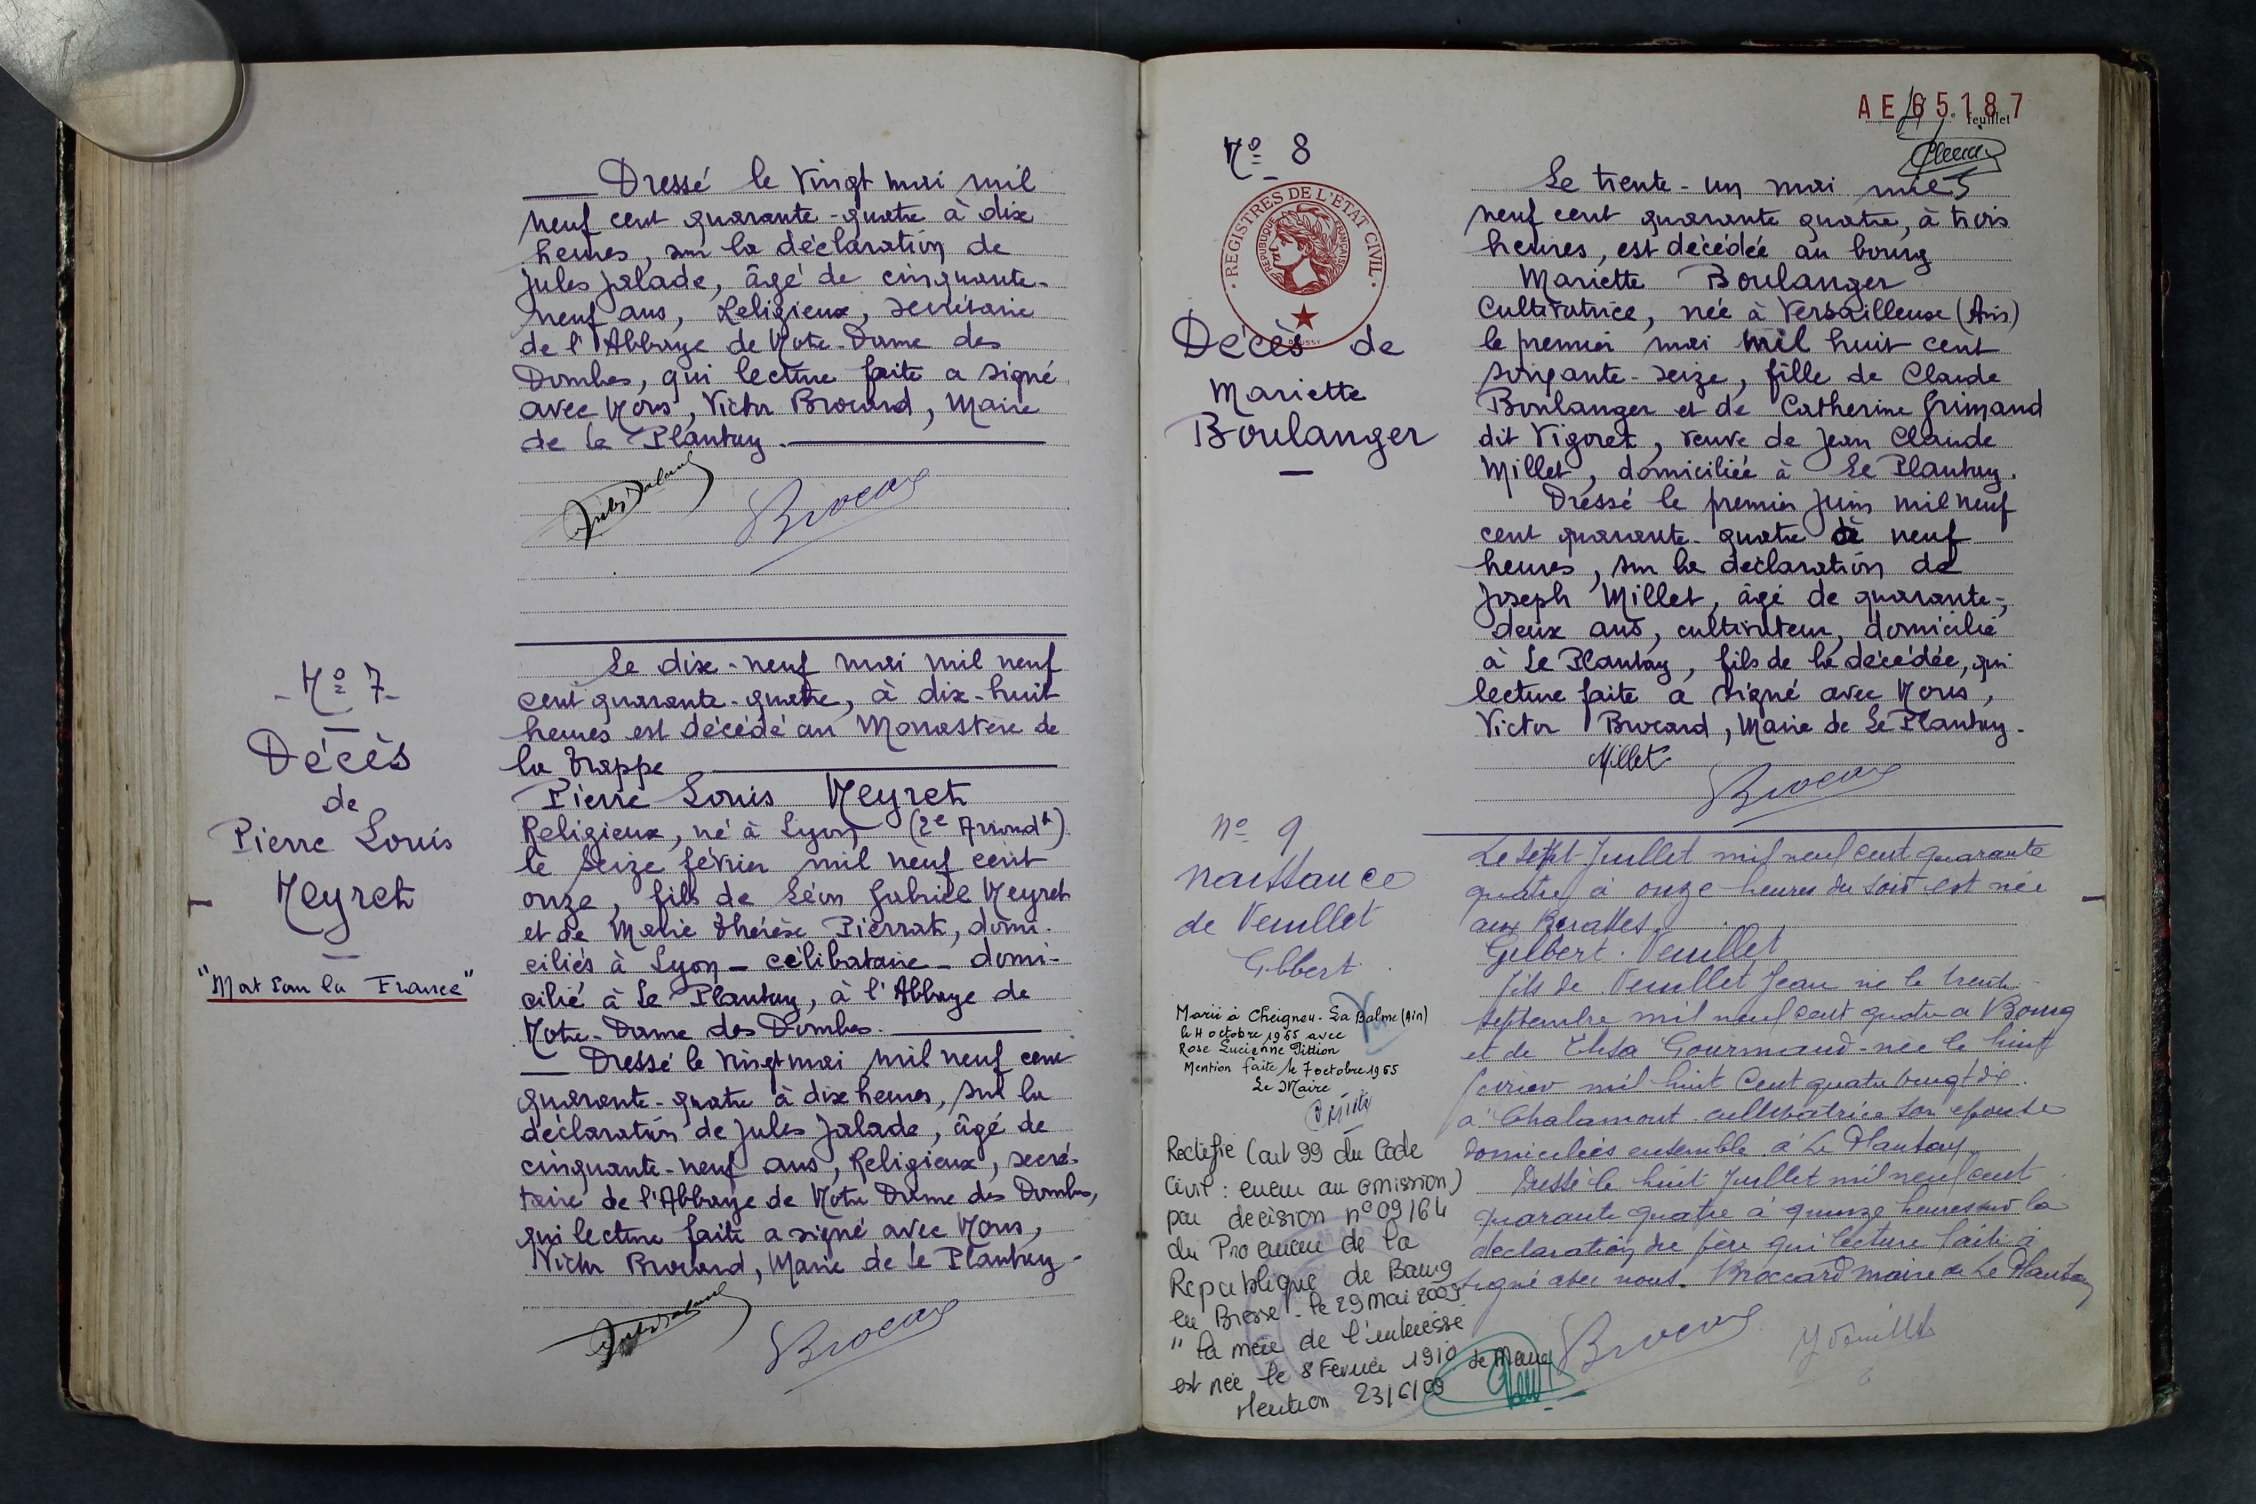 Dressé le vingt mai mil
neuf cent quarante-quatre à dix
heures, sur la déclaration de
Jules Jalade, âgé de cinquante-
neuf ans, Religieux, secrétaire
de l'Abbaye de Notre-Dame des
Dombes, qui lecture faite a signé
avec Nous, Victor Brocard, Maire
de Le Plantay.
Brocard
- No 7 -
Décès
de
Pierre Louis
Neyret
"Mort Pour la France"
Le dix-neuf mai mil neuf
cent quarante-quatre, à dix-huit
heures est décédé au Monastère de
la Trappe
Pierre Louis Neyret
Religieux, né à Lyon (2e Arrondt)
le seize février mil neuf cent
onze, fils de Léon Gabriel Neyret
et de Marie Thérèse Pierrat, domi-
ciliés à Lyon - célibataire - domi-
cilié à Le Plantay, à l'Abbaye de
Notre-Dame des Dombes.
Dressé le vingt mai mil neuf cent
quarante-quatre à dix heures, sur la
déclaration de Jules Jalade, âgé de
cinquante-neuf ans, Religieux, secré-
taire de l'Abbaye de Notre Dame des Dombes,
qui lecture faite a signé avec Nous,
Victor Brocard, Maire de Le Plantay-
Brocard
AE 65187
feuillet
No 8
REGISTRES DE L'ETAT CIVIL
REPUBLIQUE FRANÇAISE
Décès de
Mariette
Boulanger
Le trente-un mai mil
neuf cent quarante quatre, à trois
heures, est décédée au bourg
Mariette Boulanger
Cultivatrice, née à Versailleux (Ain)
le premier mai mil huit cent
soixante-seize, fille de Claude
Boulanger et de Catherine Grimaud
dit Vigoret, veuve de Jean Claude
Millet, domiciliée à Le Plantay.
Dressé le premier Juin mil neuf
cent quarante-quatre à neuf
heures, sur la déclaration de
Joseph Millet, âgé de quarante-
deux ans, cultivateur, domicilié
à Le Plantay, fils de la décédée, qui
lecture faite a signé avec Nous,
Victor Brocard, Maire de Le Plantay.
Millet
Brocard
No 9
naissance
de Veuillet
Gilbert
Marié à Cheignieu-La Balme (Ain)
le octobre 1965 avec
Rose Lucienne Pittion
Mention faite le 7 octobre 1965
Le Maire
Rectifié (art 99 du Code
Civil : erreur ou omission)
par decision no 09/64
du Procureur de la
Republique de Bourg
en Bresse - le 29 mai 2009
"la mère de l'intéressé
est née le 8 Fevrier 1910
Mention 23/6/09
Le sept Juillet mil neuf cent quarante
quatre à onze heures du soir est née
aux
Gilbert Veuillet
fils de Veuillet Jean né le trente
septembre mil neuf cent quatre a Bourg
et de Elisa Gourmand née le huit
fevrier mil huit Cent quatre vingt dix
a Chalamont cultivatrice son epouse
domiciliés ensemble à Le Plantay
Dressé le huit Juillet mil neuf cent
quarante quatre à quinze heures sur la
declaration du père qui lecture faite à
signé avec nous. Broccard maire de Le Plantay
Brocard